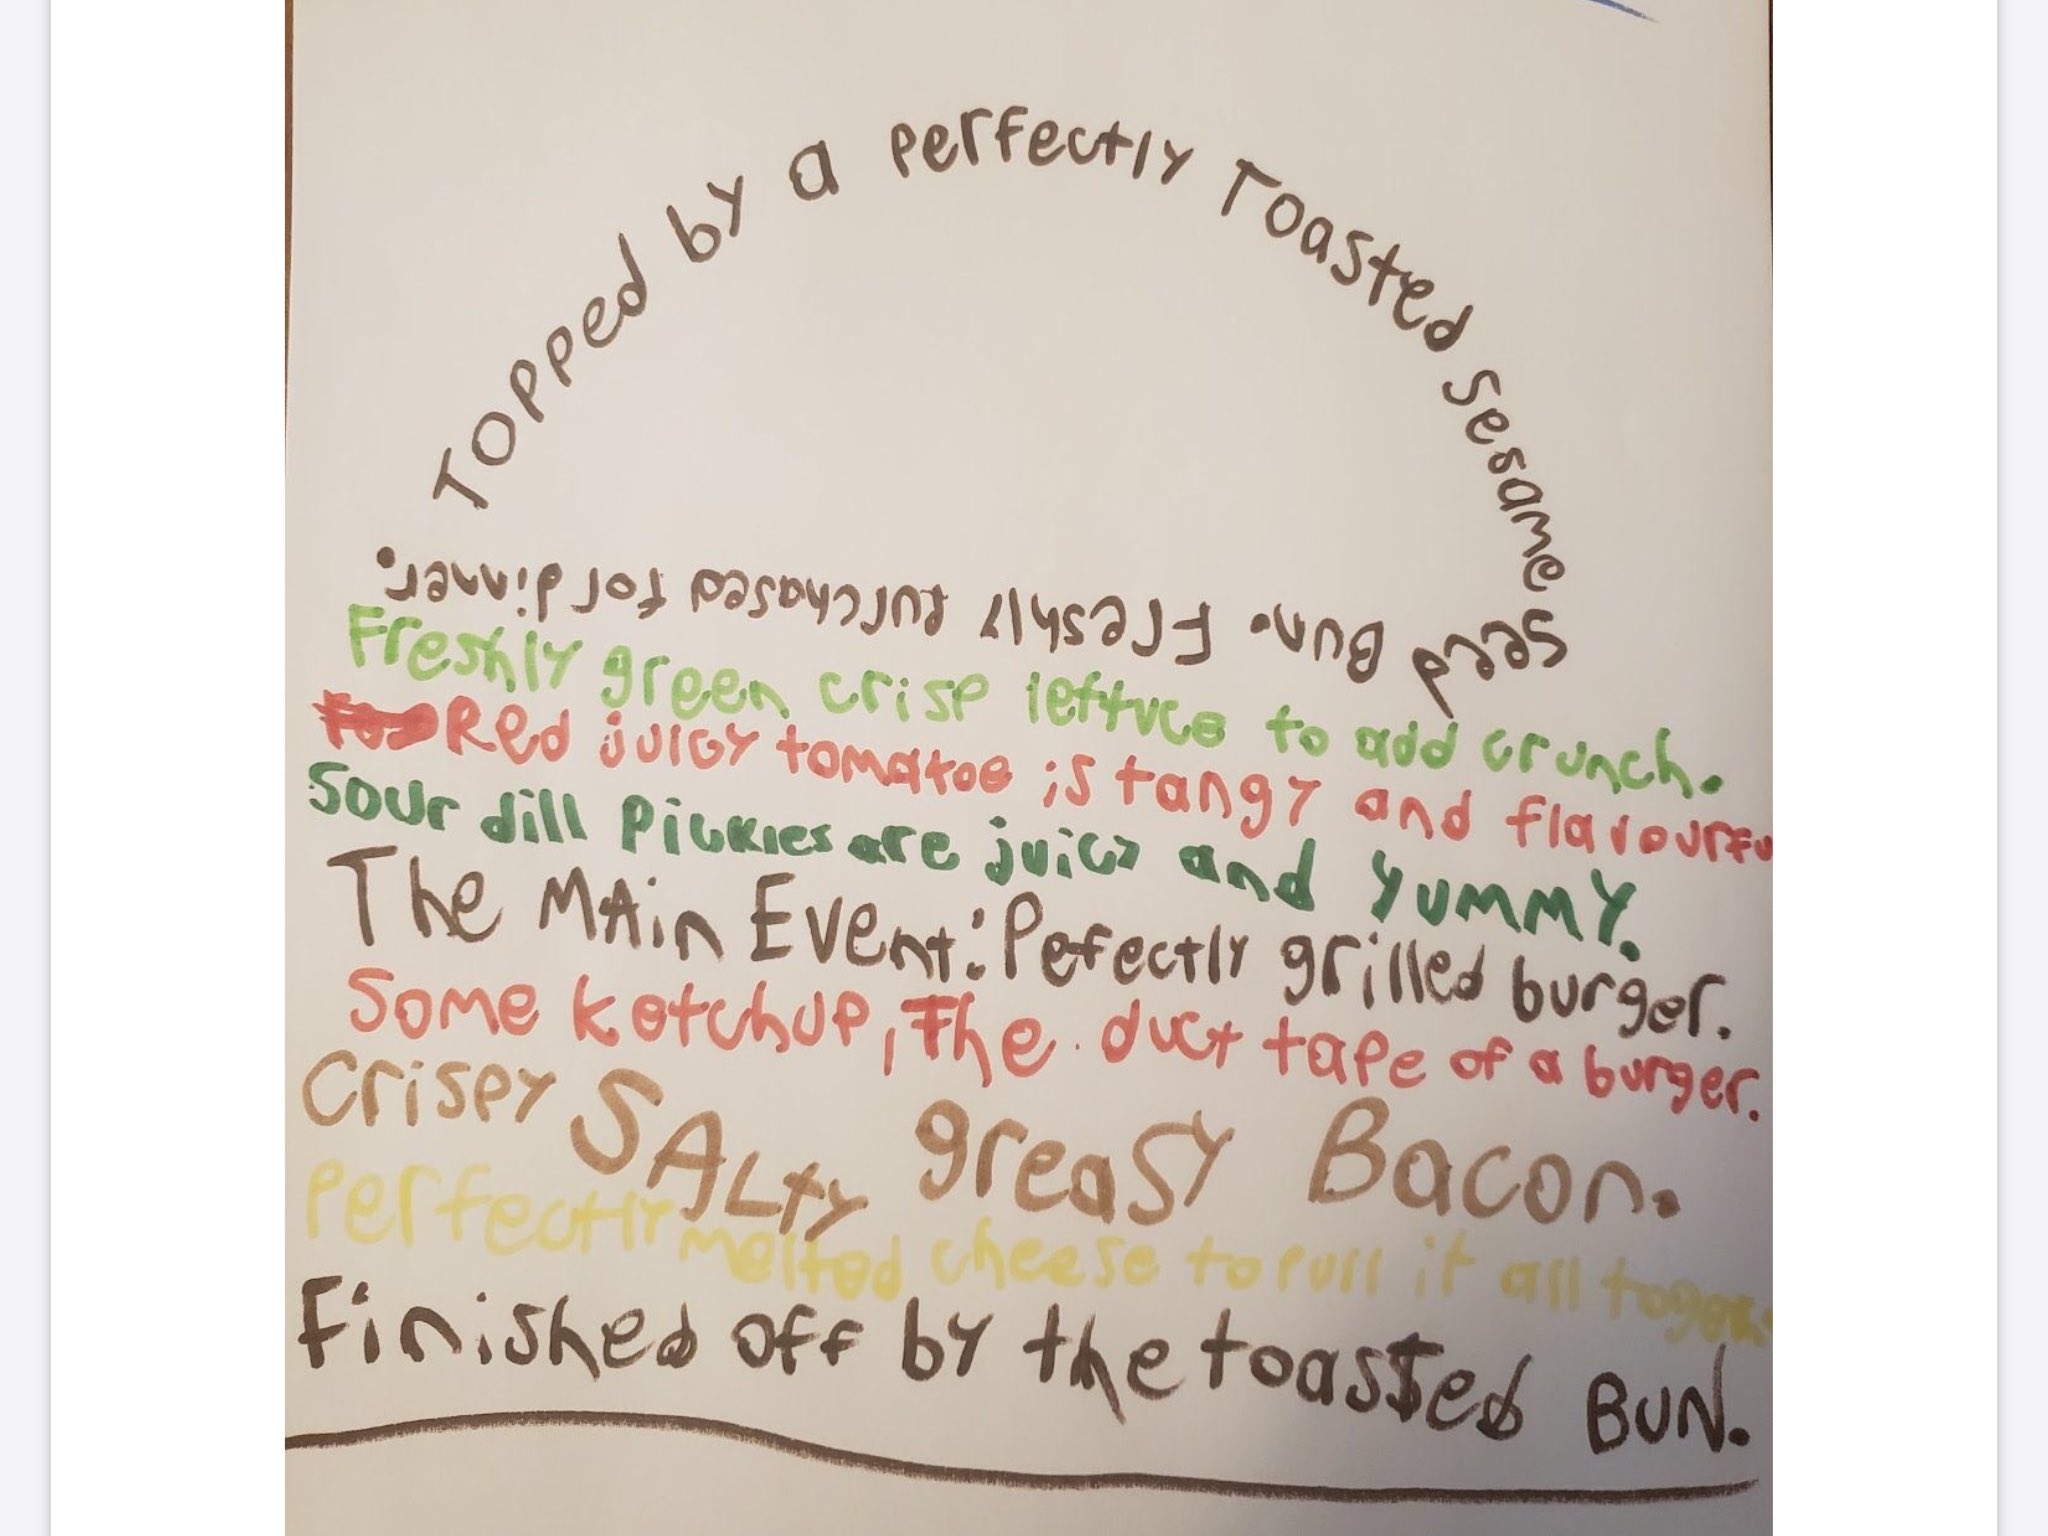 Topped by a perfectly Toasted sesame
seed Bun. Freshly purchased for dinner.
Freshly green crisp lettuce to add crunch.
Red juicy tomatoe is tangy and flavourfu
Sour dill pickles are juicy and yummy.
The MAin Event: Pefectly grilled burger.
Some ketchup, The duct tape of a burger.
Crispy SALty greasy Bacon.
Perfectly melted cheese to pull it all
Finished off by the toasted BUN.